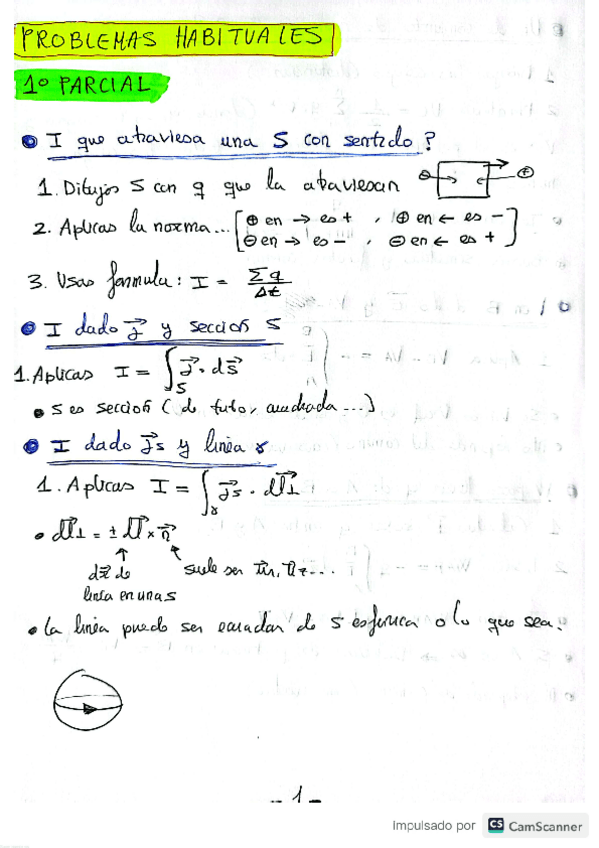 PROBLEMAS HABITUALES
1º PARCIAL
I que atraviesa una S con sentido?
1. Dibujas S con q que la atraviesan ⊖ ⊕
2. Aplicas la norma... [⊕ en → es + , ⊕ en ← es -
⊖ en → es - , ⊖ en ← es +]
3. Usas formula: I = Σq / Δt
I dado j⃗ y sección S
1. Aplicas I = ∫_S j⃗ · dS⃗
• S es sección (de tubo, cuadrada ...)
I dado j⃗s y linea γ
1. Aplicas I = ∫_γ j⃗s · dl⃗⊥
• dl⃗⊥ = ± dl⃗ × n⃗
↑ ↖
de suele ser
linea en una S
• La linea puede ser ecuador de S esferica o lo que sea.
- 1 -
Impulsado por CS CamScanner